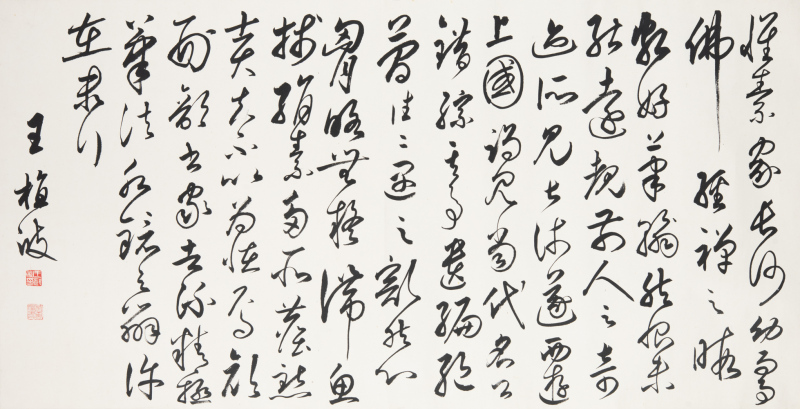 懷素家長沙幼而事
佛經禪之暇
頗好筆翰然恨未
能遠覩前人之奇
迹所見甚淺遂西遊
上國謁見當代名公
錯綜其事遺編絕
簡往々遇之豁然心
胸略無疑滯魚
牋絹素多所塵點
士大夫不以為怪焉顏
刑部書家者流精極
筆法水鏡之辯許
在末行
王植波